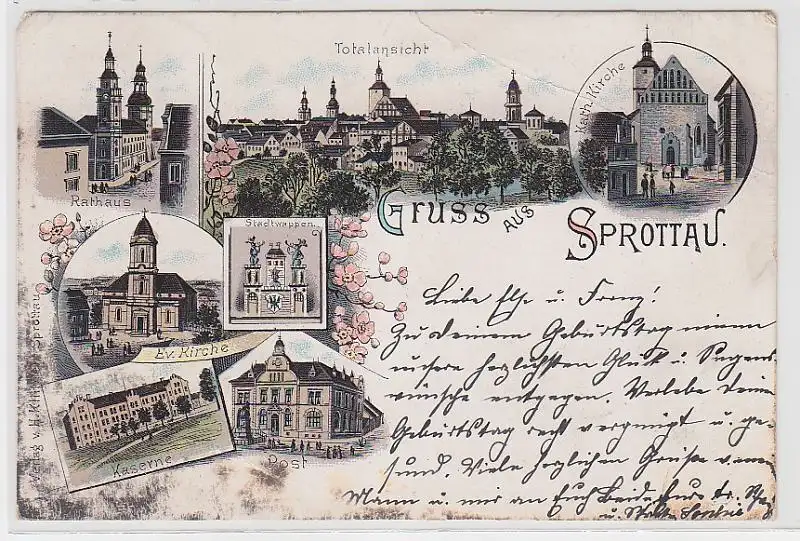 Totalansicht
Kath. Kirche
Rathaus
GRUSS AUS
SPROTTAU.
Stadtwappen.
Ev. Kirche
Kaserne
Post
Verlag v. H. Sprottau
Liebe Else u. Franz!
Zu deinem Geburtstag nimm
unsere herzlichsten Glück u. Segens
wünsche entgegen. Verlebe deinen
Geburtstag recht vergnügt u. ge-
sund. Viele herzlichen Grüße von
Mann u. mir an Euch Beide
u. Sophie